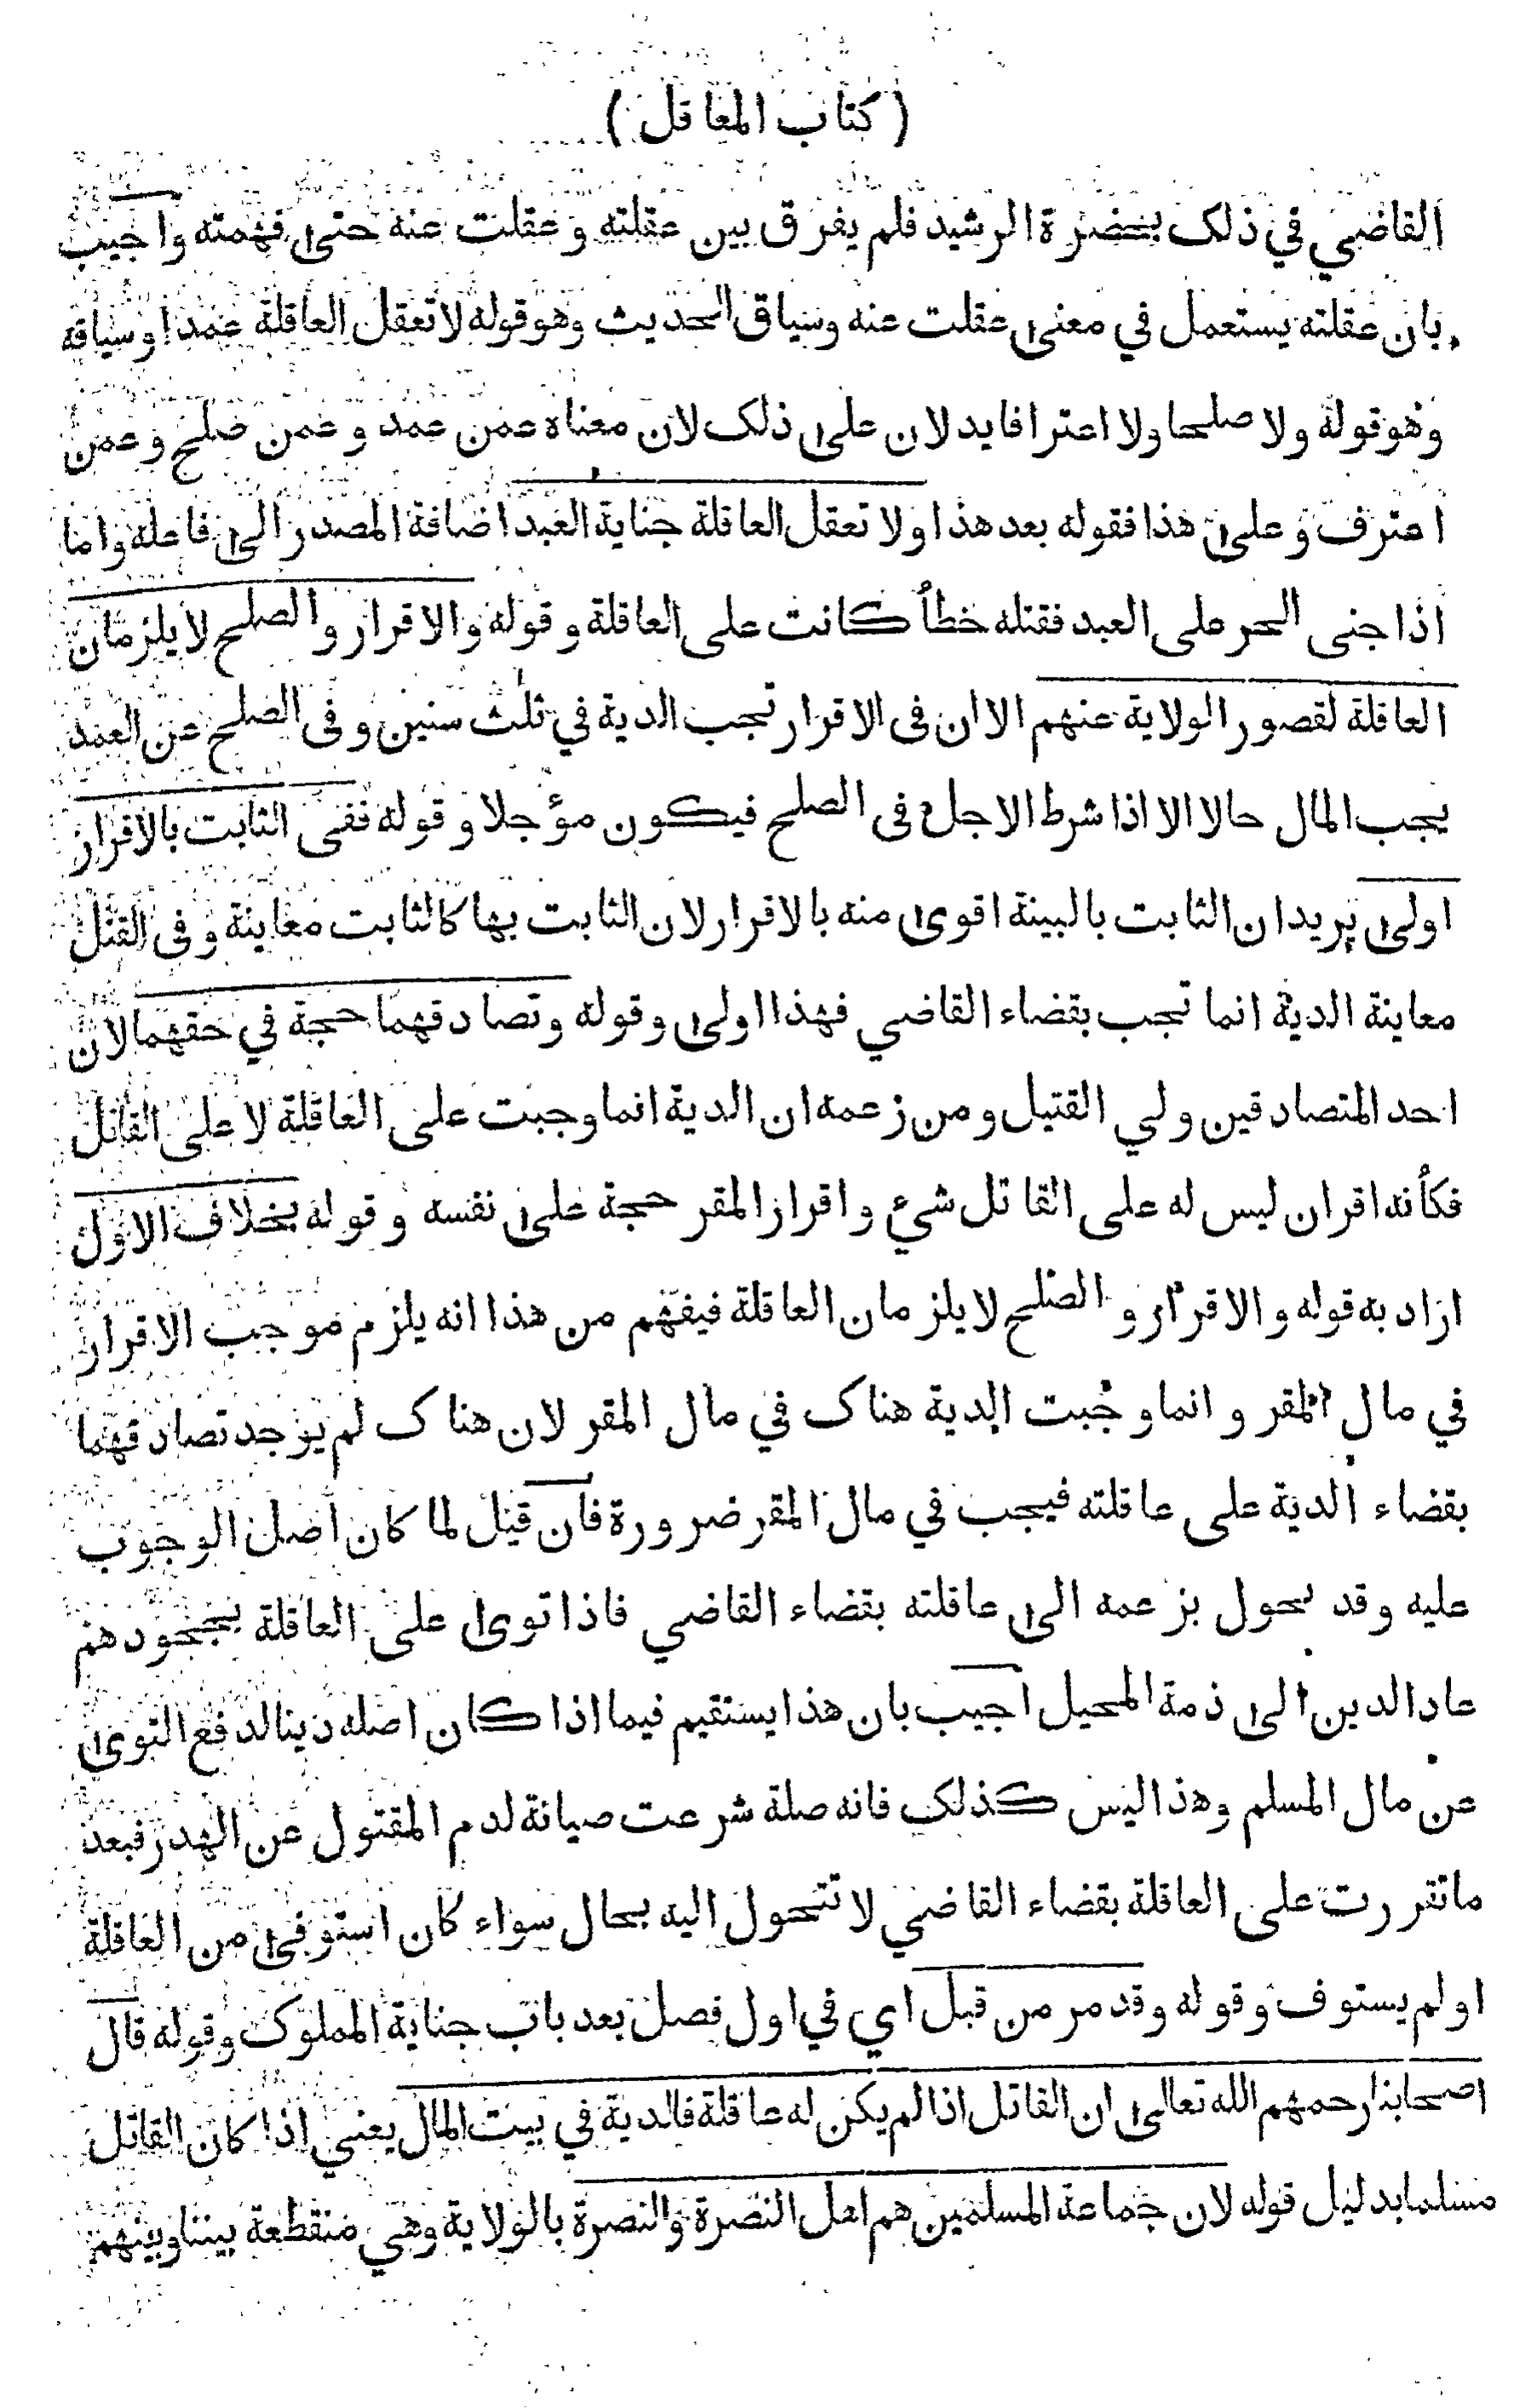 ( كتاب المعاقل )
القاضي في ذلك بحضرة الرشيد فلم يفرق بين عقلته و عقلت عنه حتى فهمته واجيب
بان عقلته يستعمل في معنى عقلت عنه وسياق الحديث وهو قوله لا تعقل العاقلة عمدا وسياقه
وهو قوله ولا صلحا ولا اعترافا يدلان على ذلك لان معناه عمن عمد و عمن صلح و عمن
اعترف و على هذا فقوله بعد هذا ولا تعقل العاقلة جناية العبد اضافة المصدر الى فاعله واما
اذا جنى الحر على العبد فقتله خطأ كانت على العاقلة و قوله والاقرار والصلح لا يلزمان
العاقلة لقصور الولاية عنهم الا ان فى الاقرار تجب الدية في ثلث سنين و فى الصلح عن العمد
يجب المال حالا الا اذا شرط الاجل فى الصلح فيكون مؤجلا و قوله ففى الثابت بالاقرار
اولى يريد ان الثابت بالبينة اقوى منه بالاقرار لان الثابت بها كالثابت معاينة و فى القتل
معاينة الدية انما تجب بقضاء القاضي فهذا اولى و قوله وتصادقهما حجة في حقهما لان
احد المتصادقين ولي القتيل و من زعمه ان الدية انما وجبت على العاقلة لا على القاتل
فكأنه اقر ان ليس له على القاتل شيء و اقرار المقر حجة على نفسه و قوله بخلاف الاول
اراد به قوله و الاقرار و الصلح لا يلزمان العاقلة فيفهم من هذا انه يلزم موجب الاقرار
في مال المقر و انما وجبت الدية هناك في مال المقر لان هناك لم يوجد تصادقهما
بقضاء الدية على عاقلته فيجب في مال المقر ضرورة فان قيل لما كان اصل الوجوب
عليه و قد يحول بزعمه الى عاقلته بقضاء القاضي فاذا توى على العاقلة بجحودهم
عاد الدين الى ذمة المحيل اجيب بان هذا يستقيم فيما اذا كان اصله دينا لدفع التوى
عن مال المسلم وهذا ليس كذلك فانه صلة شرعت صيانة لدم المقتول عن الهدر فبعد
ما تقررت على العاقلة بقضاء القاضي لا تتحول اليه بحال سواء كان استوفى من العاقلة
او لم يستوف و قوله وقد مر من قبل اي في اول فصل بعد باب جناية المملوك وقوله قال
اصحابنا رحمهم الله تعالى ان القاتل اذا لم يكن له عاقلة فالدية في بيت المال يعني اذا كان القاتل
مسلما بدليل قوله لان جماعة المسلمين هم اهل النصرة والنصرة بالولاية وهي منقطعة بيننا وبينهم